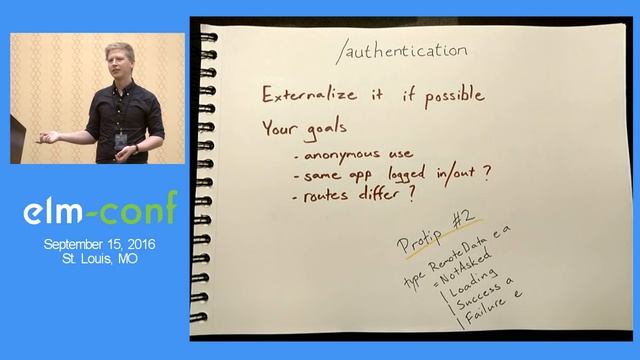 /authentication
Externalize it if possible
Your goals
- anonymous use
- same app logged in/out ?
- routes differ ?
Protip #2
type RemoteData e a
= NotAsked
| Loading
| Success a
| Failure e
elm-conf
September 15, 2016
St. Louis, MO